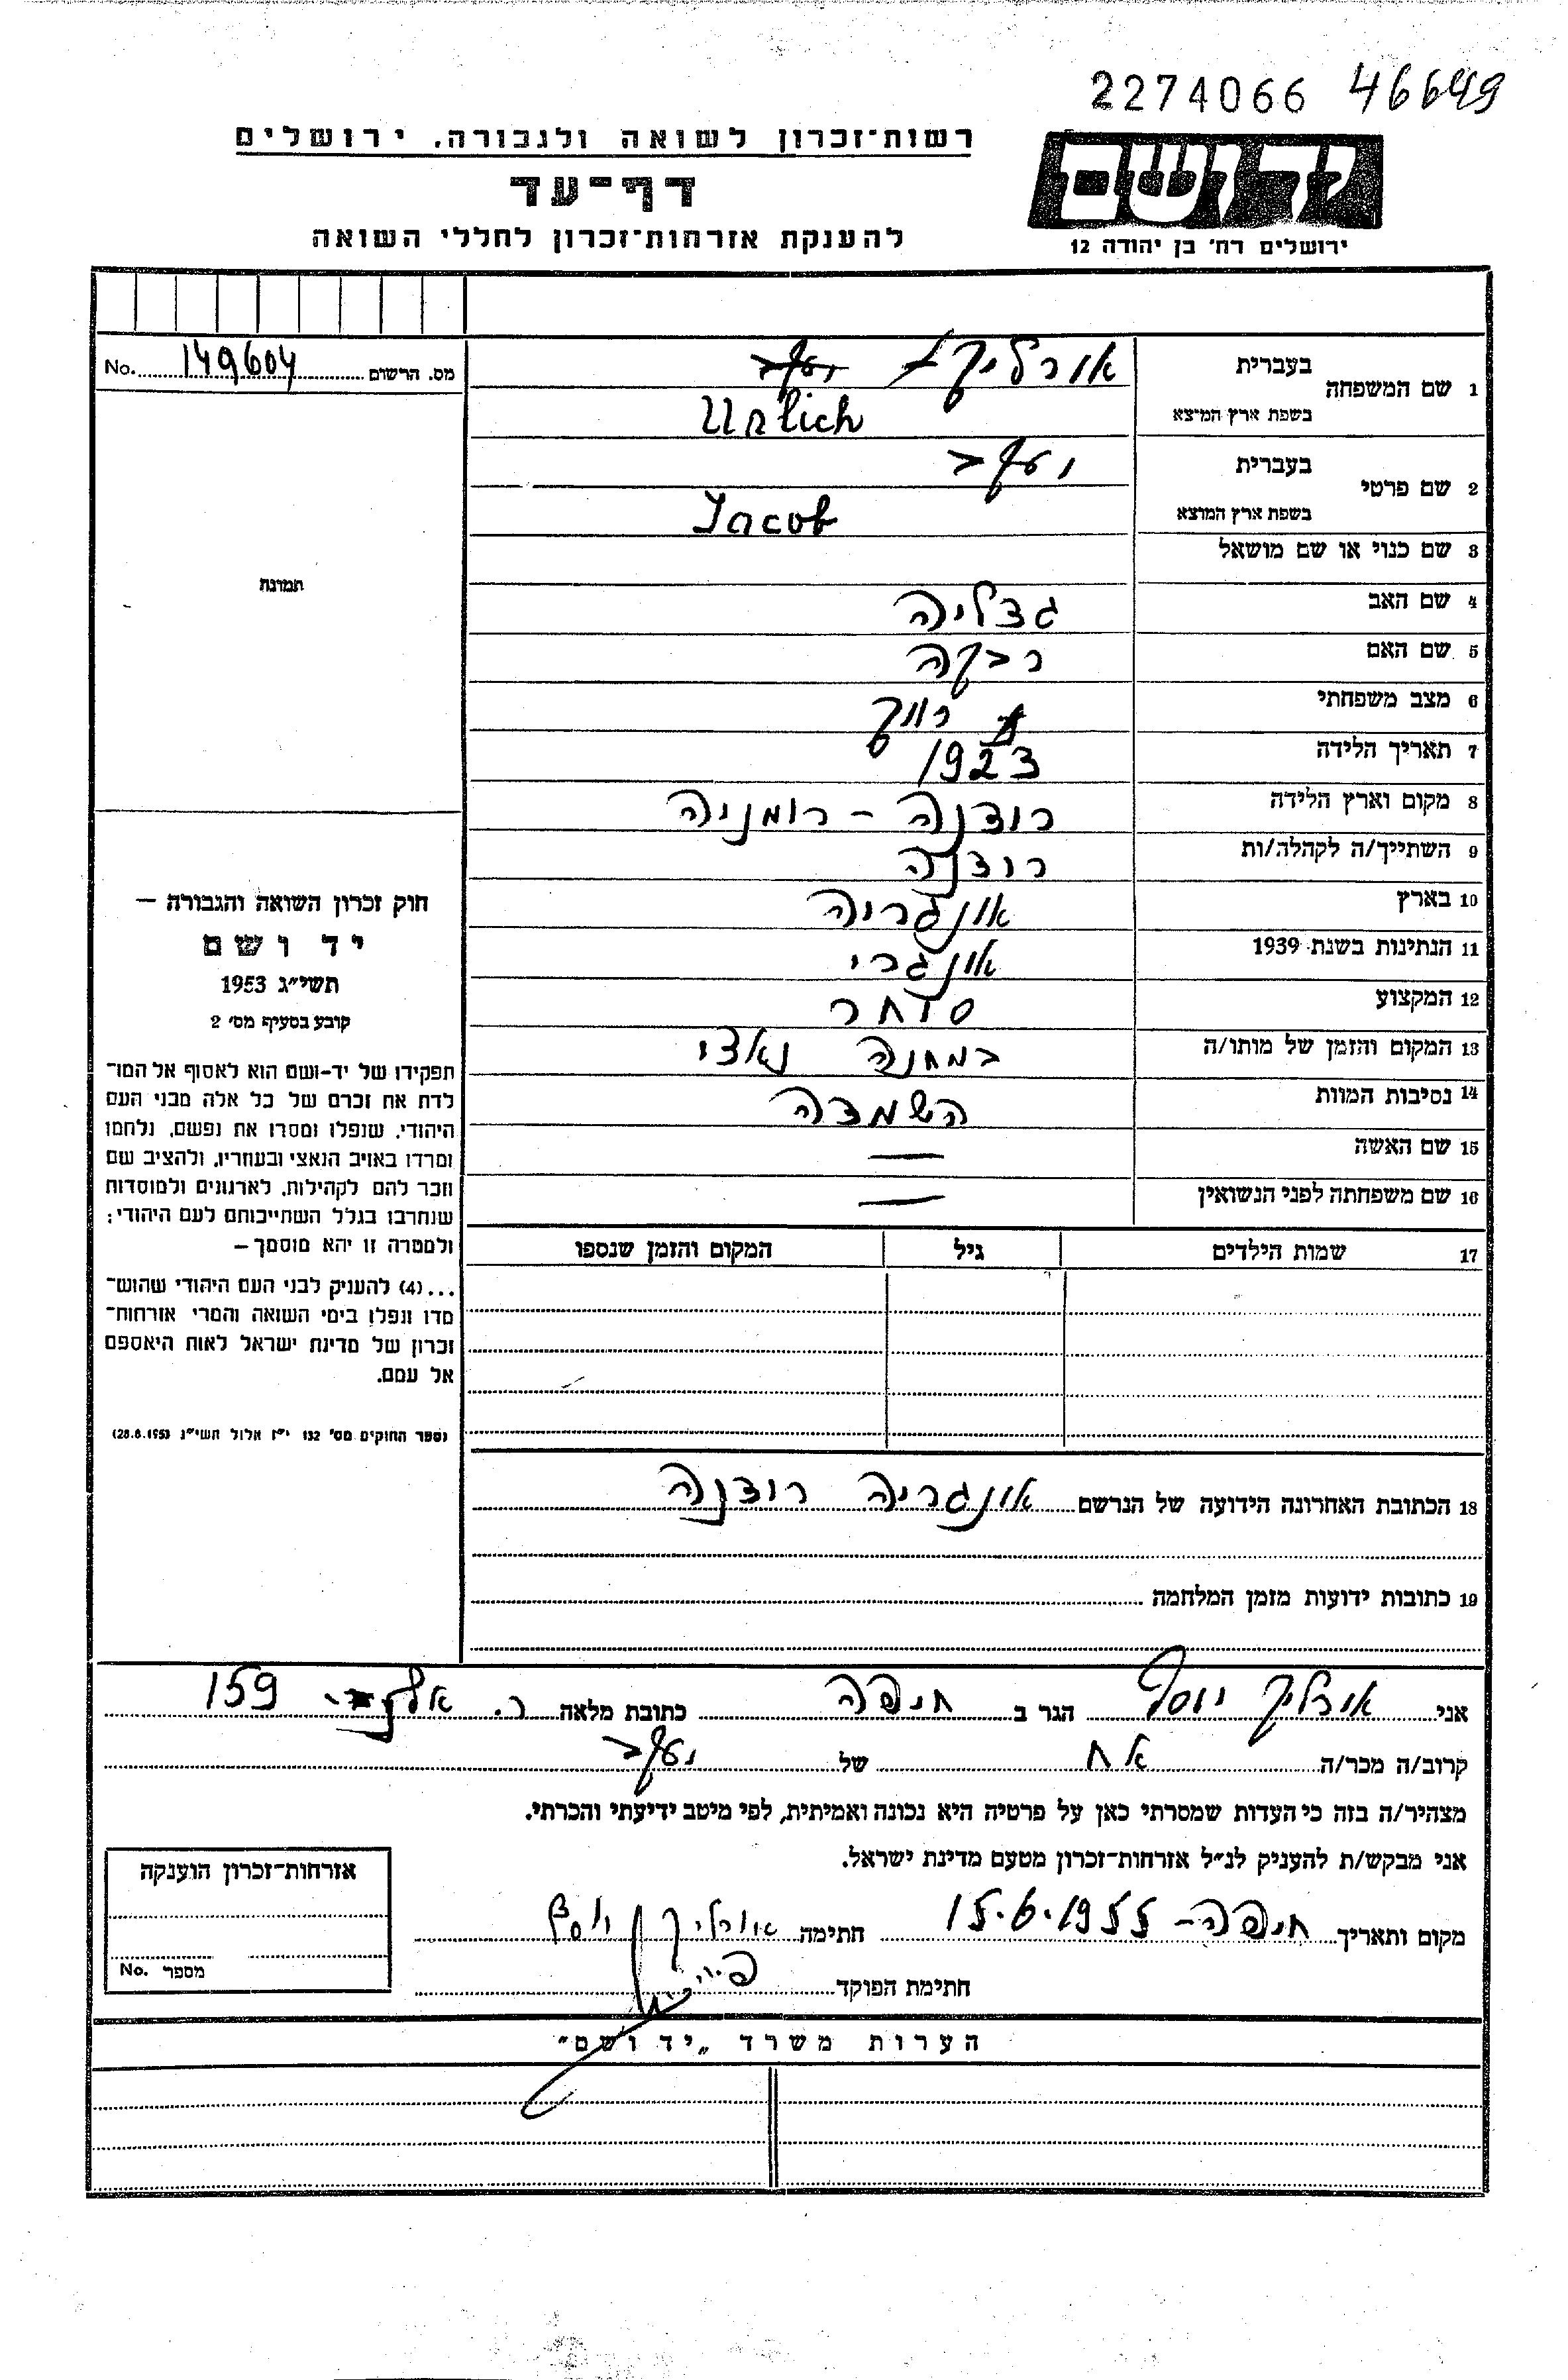 2274066 46649
רשות־זכרון לשואה ולגבורה, ירושלים
ידושם
דף־עד
ירושלים רח' בן יהודה 12
להענקת אזרחות־זכרון לחללי השואה
מס. הרשום 149604 No.
1 שם המשפחה בעברית אורליק
בשפת ארץ המוצא Urlich
2 שם פרטי בעברית יעקב
בשפת ארץ המוצא Jacob
3 שם כנוי או שם מושאל
תמונה
4 שם האב גדליה
5 שם האם רבקה
6 מצב משפחתי רווק
7 תאריך הלידה 1923
8 מקום וארץ הלידה רודנה - רומניה
9 השתייך/ה לקהלה/ות רודנה
10 בארץ אונגריה
11 הנתינות בשנת 1939 אונגרי
12 המקצוע סוחר
13 המקום והזמן של מותו/ה במחנה נאצי
14 נסיבות המוות השמדה
15 שם האשה —
16 שם משפחתה לפני הנשואין —
17 שמות הילדים גיל המקום והזמן שנספו
חוק זכרון השואה והגבורה —
יד ושם
תשי״ג 1953
קובע בסעיף מס' 2
תפקידו של יד-ושם הוא לאסוף אל המו־
לדת את זכרם של כל אלה מבני העם
היהודי, שנפלו ומסרו את נפשם, נלחמו
ומרדו באויב הנאצי ובעוזריו, ולהציב שם
וזכר להם לקהילות, לארגונים ולמוסדות
שנחרבו בגלל השתייכותם לעם היהודי;
ולמטרה זו יהא מוסמך —
...(4) להעניק לבני העם היהודי שהוש־
מדו ונפלו בימי השואה והמרי אזרחות־
זכרון של מדינת ישראל לאות היאספם
אל עמם.
(ספר החוקים מס' 132 י״ז אלול תשי״ג 28.8.1953)
18 הכתובת האחרונה הידועה של הנרשם אונגריה רודנה
19 כתובות ידועות מזמן המלחמה
אני אורליק יוסף הגר ב חיפה כתובת מלאה ר. 159
קרוב/ה מכר/ה אח של יעקב
מצהיר/ה בזה כי העדות שמסרתי כאן על פרטיה היא נכונה ואמיתית, לפי מיטב ידיעתי והכרתי.
אני מבקש/ת להעניק לנ״ל אזרחות־זכרון מטעם מדינת ישראל.
אזרחות־זכרון הוענקה
מספר No.
מקום ותאריך חיפה - 15.6.1955 חתימה אורליק יוסף
חתימת הפוקד
הערות משרד „יד ושם"